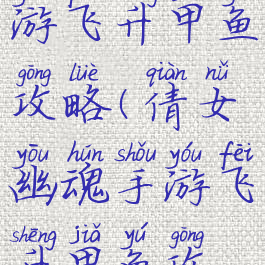 游飞升甲鱼
gōng lüè qiàn nǚ
攻略(倩女
yōu hún shǒu yóu fēi
幽魂手游飞
shēng jiǎ yú gōng
升甲鱼攻